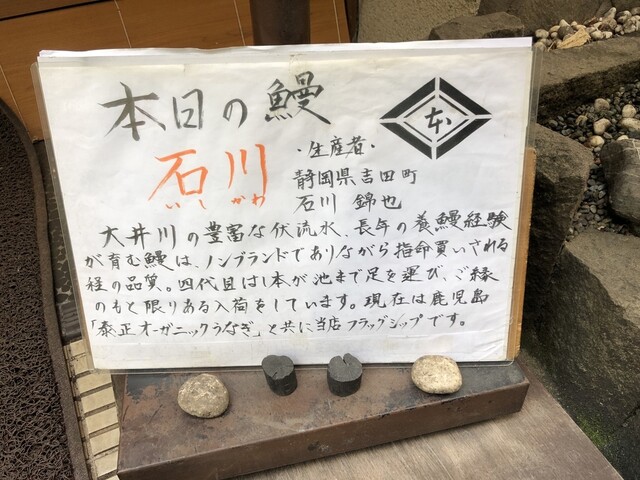 本日の鰻
本
石川
いしかわ
・生産者・
静岡県吉田町
石川 錦也
大井川の豊富な伏流水、長年の養鰻経験
が育む鰻は、ノンブランドでありながら指命買いされる
程の品質。四代目はし本が池まで足を運び、ご縁
のもと限りある入荷をしています。現在は鹿児島
「泰正オーガニックうなぎ」と共に当店フラッグシップです。